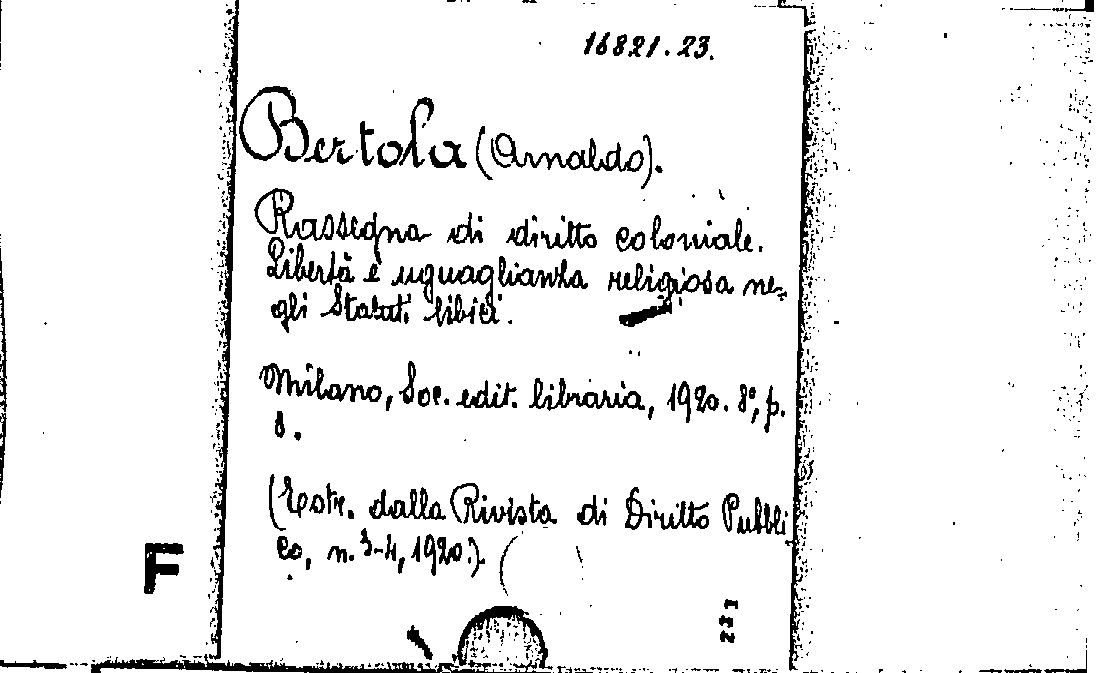 16821.23.
Bertola (Arnaldo).
Rassegna di diritto coloniale.
Libertà e uguaglianza religiosa ne-
gli Statuti libici.
Milano, Soc. edit. libraria, 1920. 8°, p.
8.
(Estr. dalla Rivista di Diritto Pubbli
co, n. 3-4, 1920.).
F
221